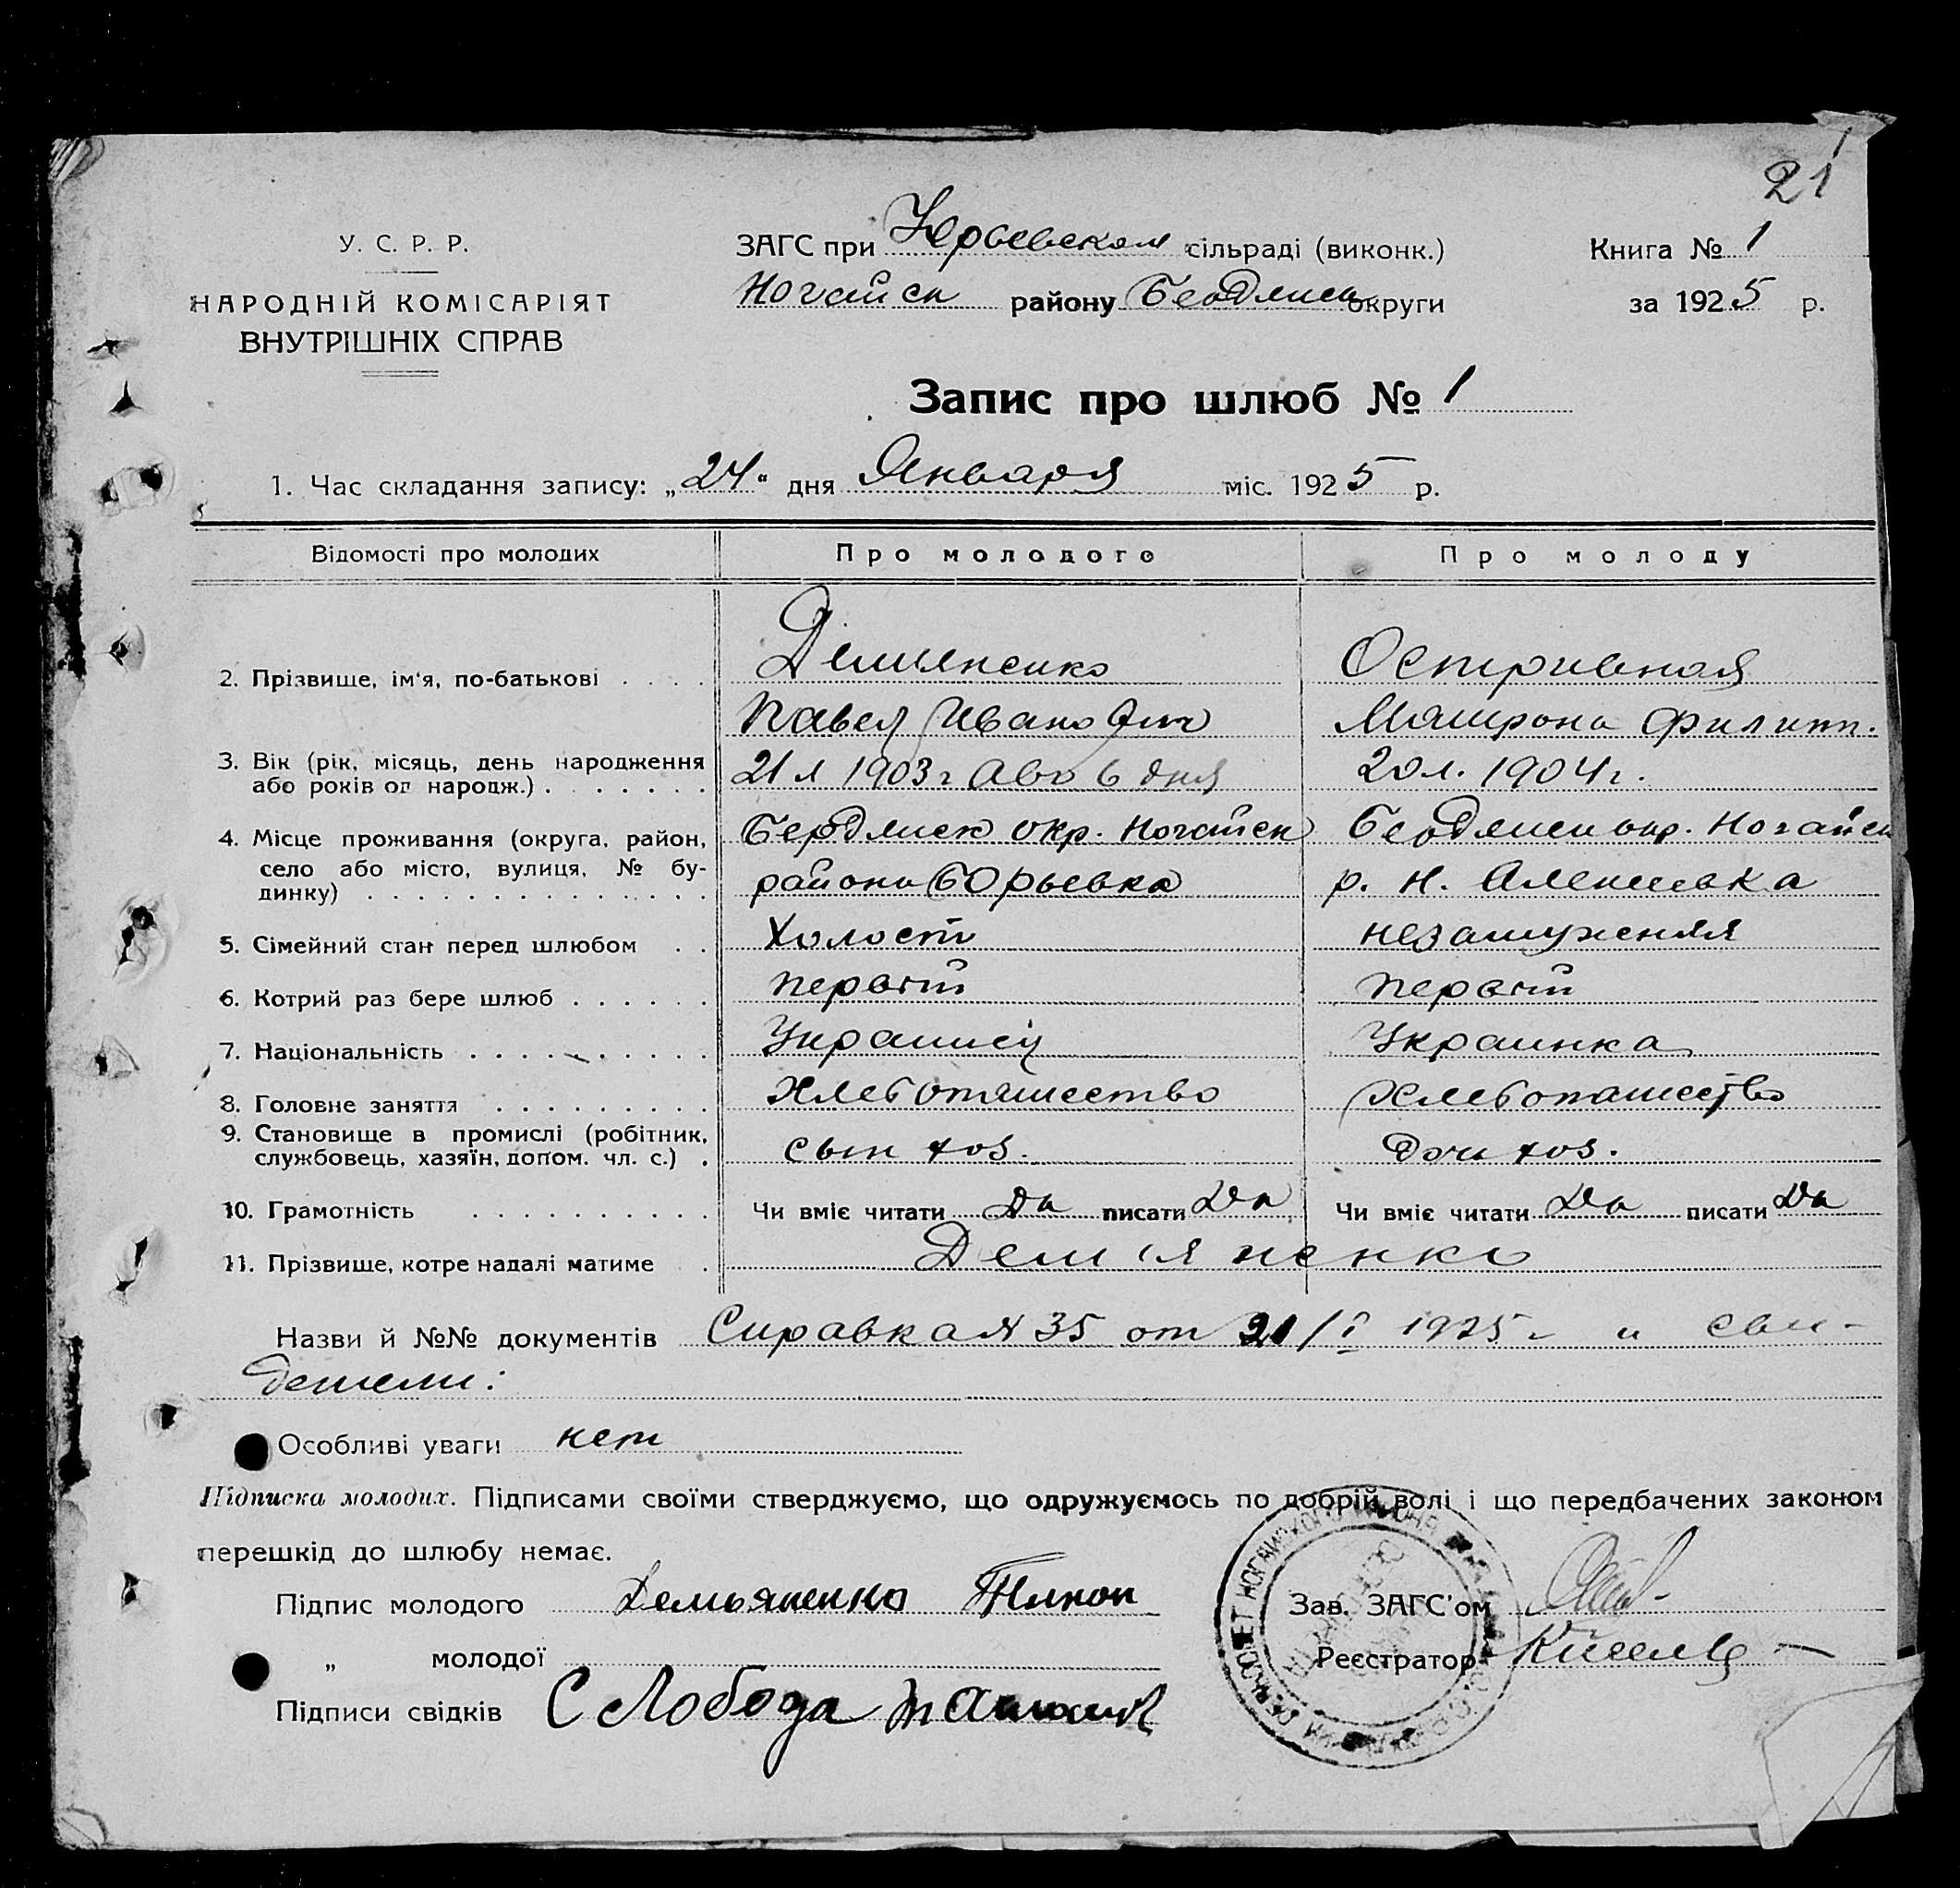 21
У. С. Р. Р.
НАРОДНІЙ КОМІСАРІЯТ
ВНУТРІШНІХ СПРАВ
ЗАГС при Юрьевском сільраді (виконк.)
Ногайск району Бердянск округи
Книга № 1
за 1925 р.
Запис про шлюб № 1
1. Час складання запису: „24“ дня Января міс. 1925 р.
Відомості про молодих Про молодого Про молоду
2. Прізвище, ім'я, по-батькові . . . . Демьяненко Остривная
Павел Иванович Матрона Филипп.
3. Вік (рік, місяць, день народження або років од народж.) . . . . . . . 21 л 1903 г Авг 6 дня 20 л. 1904 г.
4. Місце проживання (округа, район, Бердянск окр. Ногайск Бердянск окр. Ногайск
село або місто, вулиця, № будинку) . . . . . . . . . . . . . . района Юрьевка р. Н. Алексеевка
5. Сімейний стан перед шлюбом . . Холост незамужняя
6. Котрий раз бере шлюб . . . . . . первый первый
7. Національність . . . . . . . . . . Украинец Украинка
8. Головне заняття . . . . . . . . . Хлебопашество Хлебопашество
9. Становище в промислі (робітник, службовець, хазяїн, допом. чл. с.) . сын хоз. дочь хоз.
10. Грамотність . . . . . . . . . . Чи вміє читати Да писати Да Чи вміє читати Да писати Да
11. Прізвище, котре надалі матиме . Дем'яненко
Назви й №№ документів Справка № 35 от 21/I 1925 г и сви-
детели:
Особливі уваги нет
Підписка молодих. Підписами своїми стверджуємо, що одружуємось по добрій волі і що передбачених законом
перешкід до шлюбу немає.
Підпис молодого Демьяненко
Зав. ЗАГС'ом
„ молодої
Реєстратор
Підписи свідків С Лобода